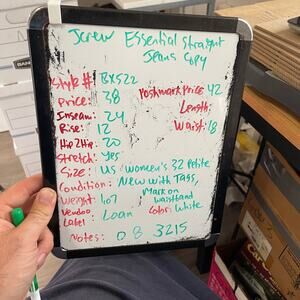 Jcrew Essential Straight
Jeans Grey
Style #: BX522
Price: 38 Poshmark Price 42
Inseam: 24 Length:
Rise: 12 Waist: 18
Hip 2 Hip: 20
Stretch: Yes
Size: US Women's 32 Petite
Condition: New with Tags
Mark on
Weight: 1.07 waistband
Vendoo Color: White
Label Loan
Notes: 0 8 3215